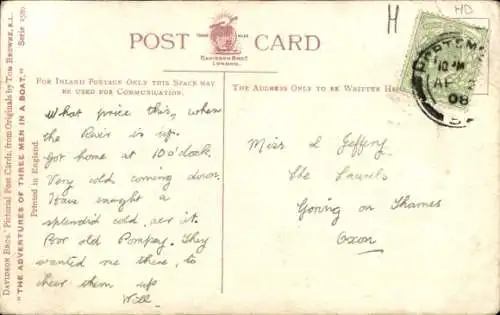 H
HD
POST CARD
TRADE MARK
DAVIDSON BROS.
LONDON.
DAVIDSON BROS.' Pictorial Post Cards, from Originals by TOM BROWNE, R.I.
Serie 2580.
"THE ADVENTURES OF THREE MEN IN A BOAT."
Printed in England.
FOR INLAND POSTAGE ONLY THIS SPACE MAY
BE USED FOR COMMUNICATION.
THE ADDRESS ONLY TO BE WRITTEN
What price this, when
the River is up.
Got home at 10 o'clock.
Very cold coming down.
Have caught a
splendid cold
Poor old Pompey. They
wanted me there, to
cheer them up
Will
10
AP
08
Miss L Geffery
The Laurels
Goring on Thames
Oxon